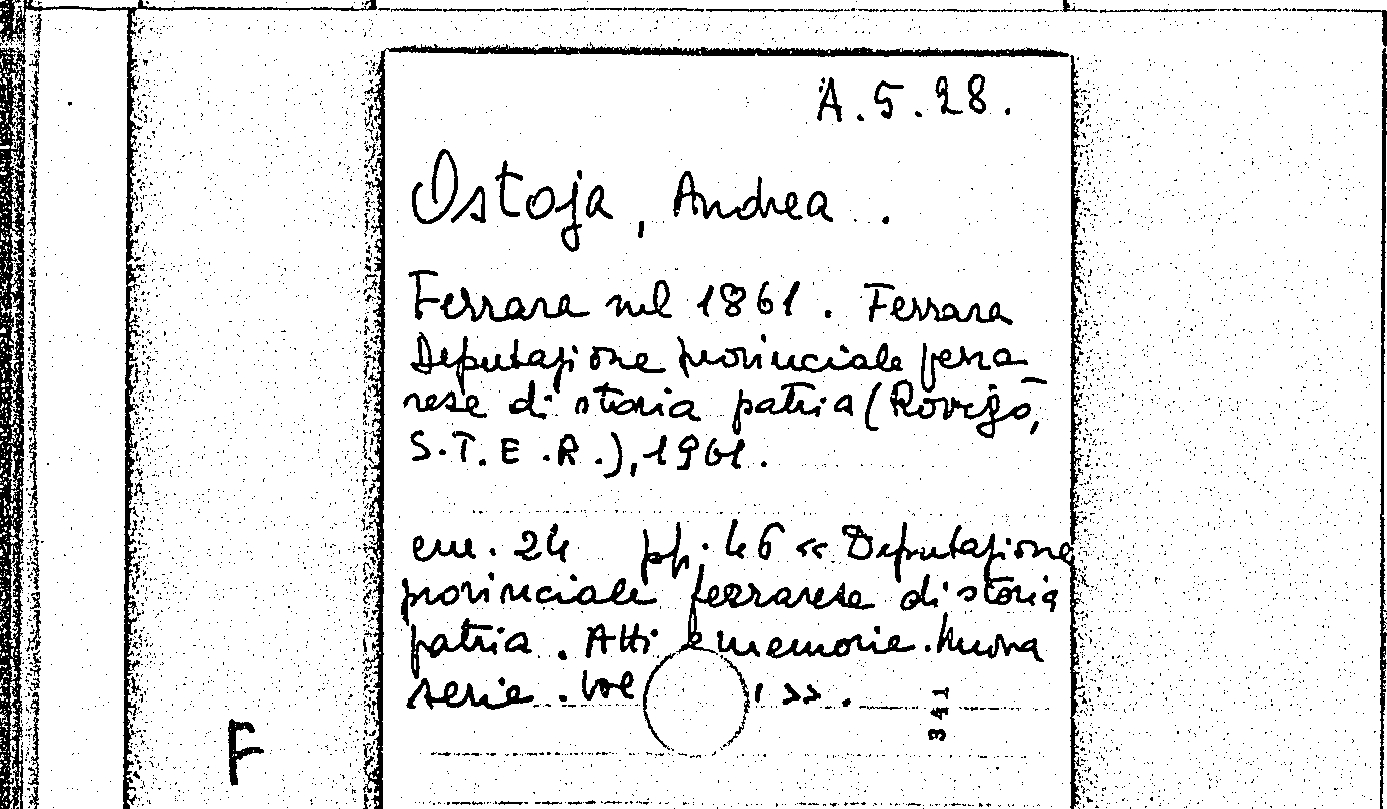 A.5.28.
Ostoja, Andrea.
Ferrara nel 1861. Ferrara
Deputazione provinciale ferra-
rese di storia patria (Rovigo,
S.T.E.R.), 1961.
cm. 24 pp. 46 « Deputazione
provinciale ferrarese di storia
patria. Atti e memorie. Nuova
serie. Vol ».
341
F